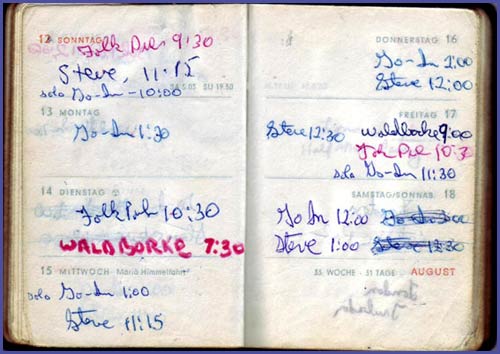 12 SONNTAG
Folk Pub 9:30
Steve, 11:15
solo Go-In - 10:00
SA 5.05 SU 19.30
13 MONTAG
Go-In 1:30
14 DIENSTAG
Folk Pub 10:30
WALDBORKE 7:30
15 MITTWOCH Mariä Himmelfahrt
solo Go-In 1:00
Steve 11:15
DONNERSTAG 16
Go-In 1:00
Steve 12:00
FREITAG 17
Steve 12:30 Waldborke 9:00
Folk Pub 10:3
solo Go-In 11:30
SAMSTAG/SONNAB. 18
Go In 12:00
Steve 1:00 Steve 12:30
33. WOCHE · 31 TAGE AUGUST